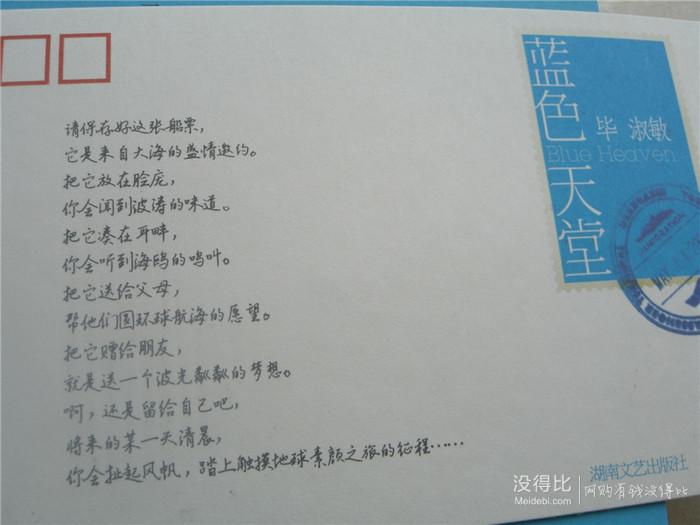 请保存好这张船票，
它是来自大海的盛情邀约。
把它放在脸庞，
你会闻到波涛的味道。
把它凑在耳畔，
你会听到海鸥的鸣叫。
把它送给父母，
帮他们圆环球航海的愿望。
把它赠给朋友，
就是送一个波光粼粼的梦想。
啊，还是留给自己吧，
将来的某一天清晨，
你会扯起风帆，踏上触摸地球素颜之旅的征程……
蓝色天堂
毕 淑敏
Blue Heaven
湖南文艺出版社
没得比
Meidebi.com
网购有钱没得比